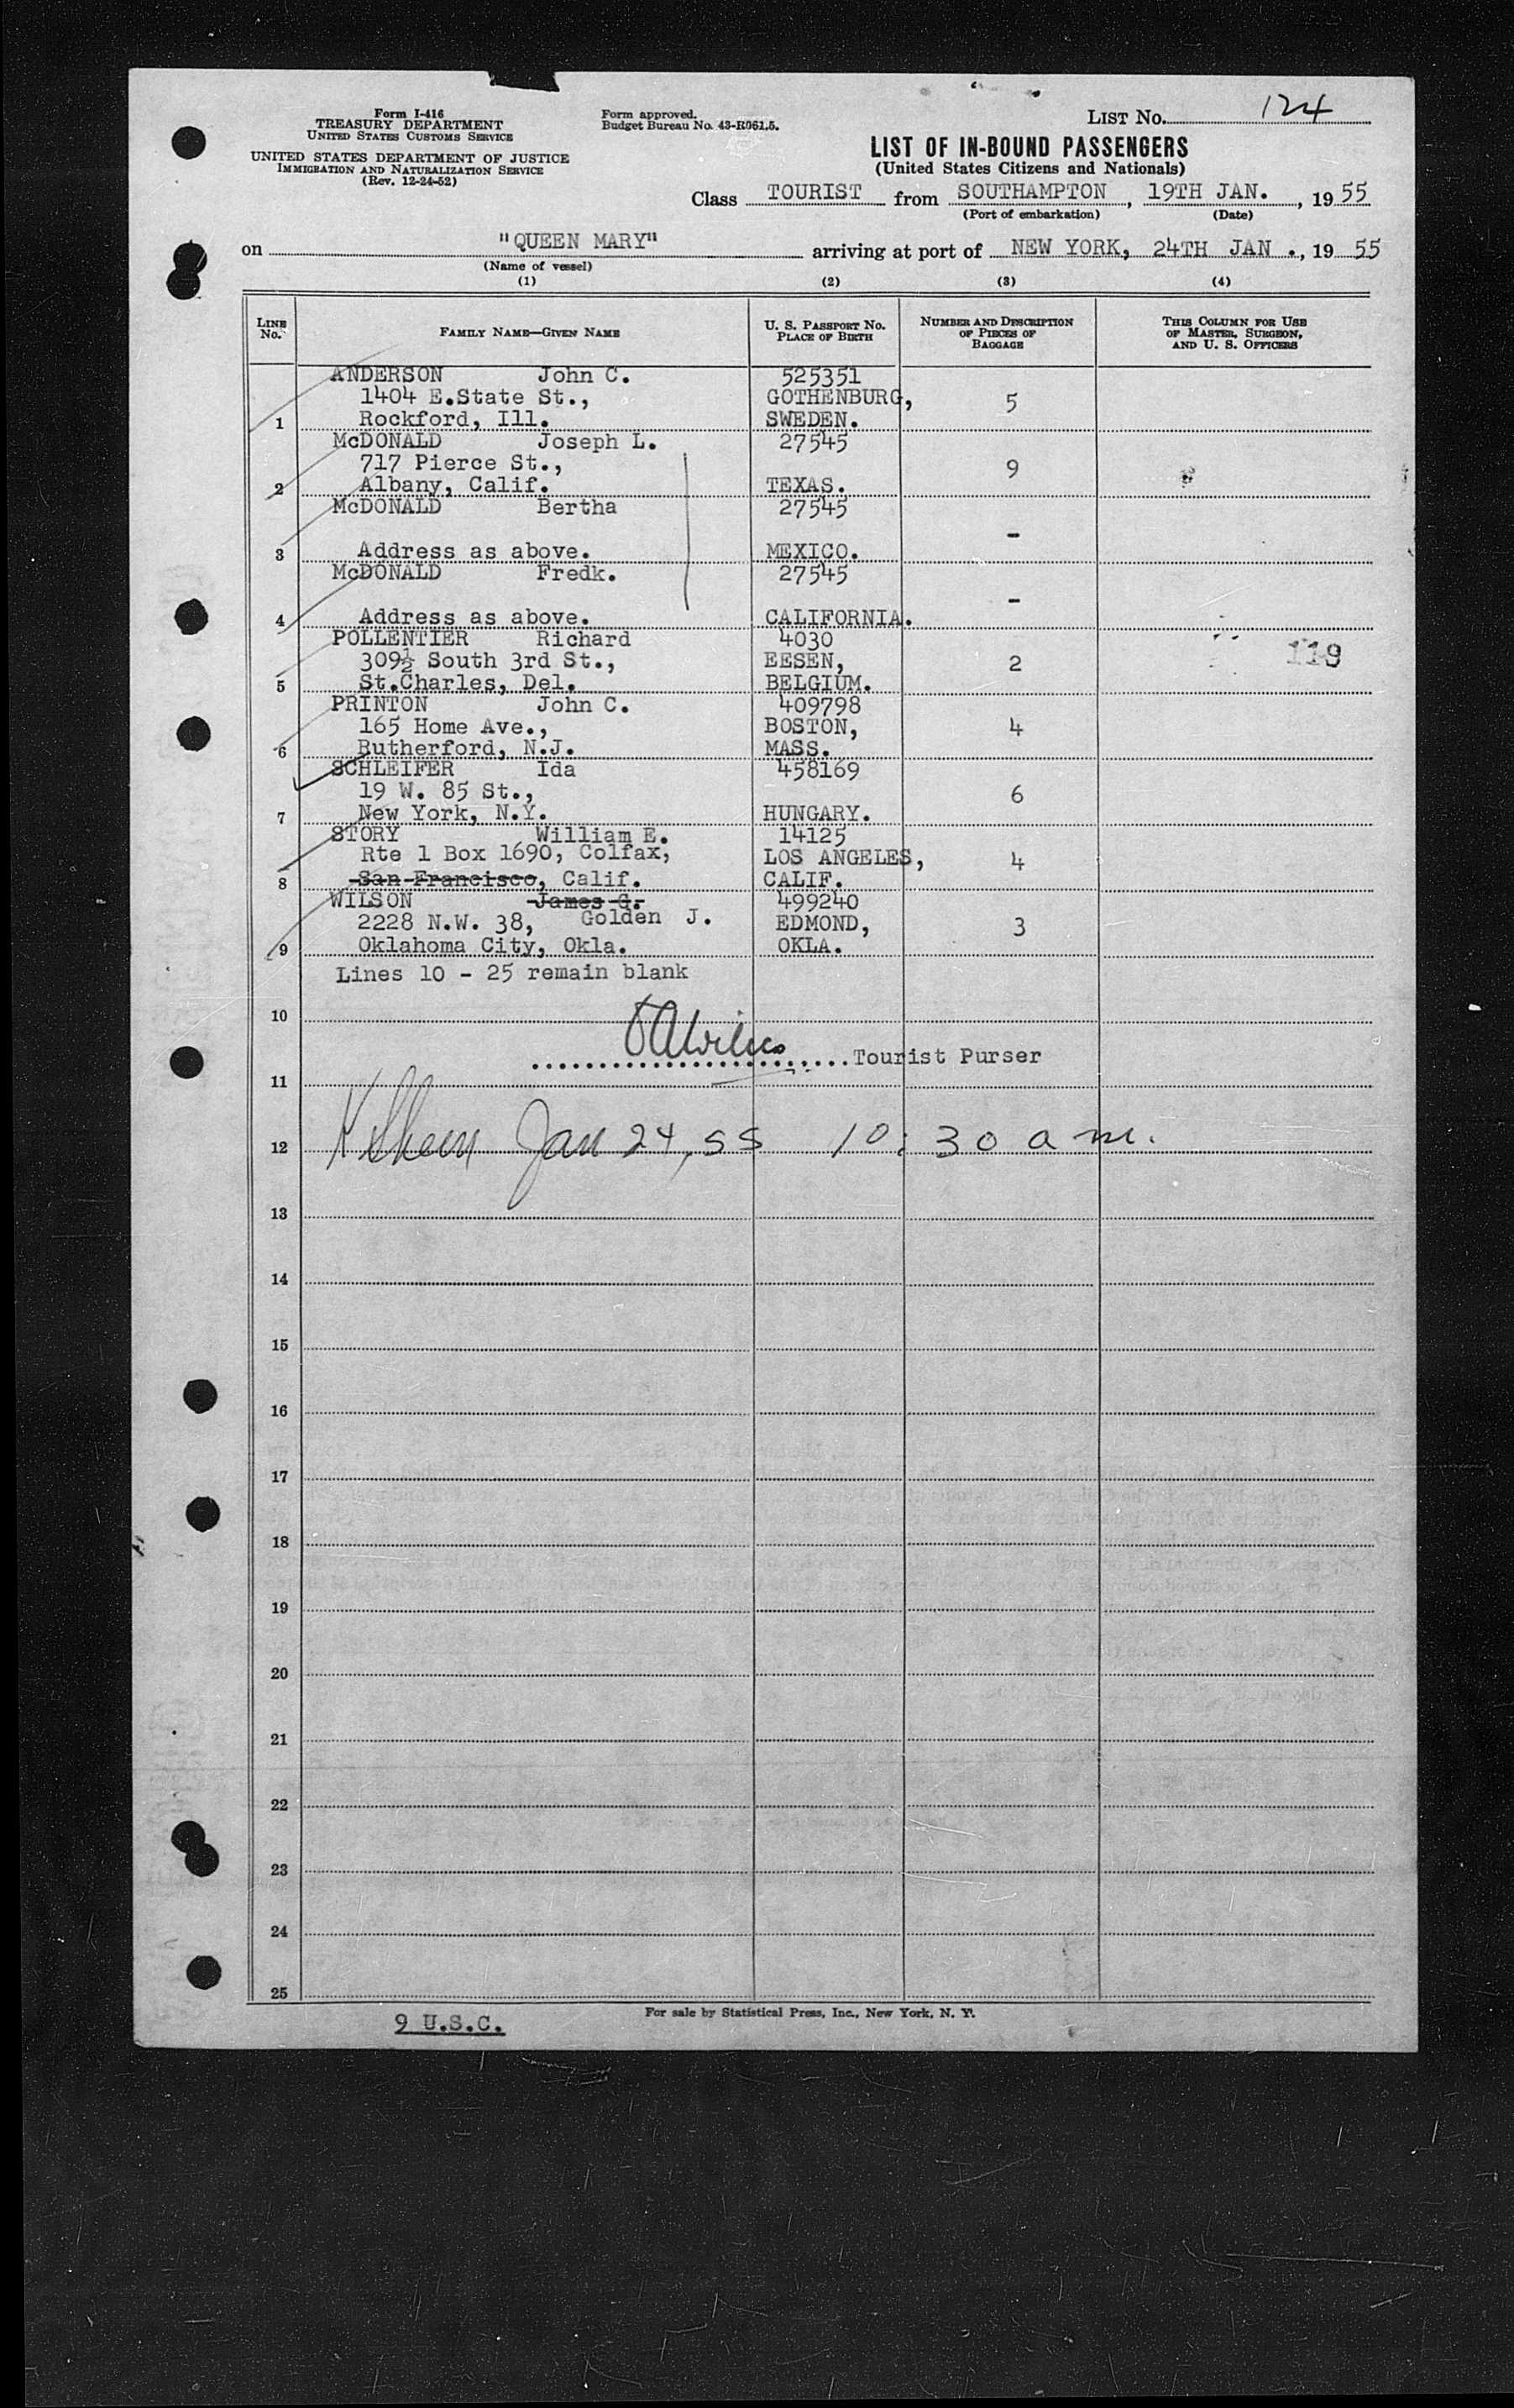 Form I-416
TREASURY DEPARTMENT
UNITED STATES CUSTOMS SERVICE
UNITED STATES DEPARTMENT OF JUSTICE
IMMIGRATION AND NATURALIZATION SERVICE
(Rev. 12-24-52)
Form approved.
Budget Bureau No. 43-R061.5.
LIST No. 124
LIST OF IN-BOUND PASSENGERS
(United States Citizens and Nationals)
Class TOURIST from SOUTHAMPTON, 19TH JAN., 1955
(Port of embarkation) (Date)
on "QUEEN MARY" arriving at port of NEW YORK, 24TH JAN ., 1955
(Name of vessel)
(1) (2) (3) (4)
LINE No. FAMILY NAME—GIVEN NAME U. S. PASSPORT No. PLACE OF BIRTH NUMBER AND DESCRIPTION OF PIECES OF BAGGAGE THIS COLUMN FOR USE OF MASTER, SURGEON, AND U. S. OFFICERS
ANDERSON John C. 525351
1404 E.State St., GOTHENBURG, 5
1 Rockford, Ill. SWEDEN.
McDONALD Joseph L. 27545
717 Pierce St., 9
2 Albany, Calif. TEXAS.
McDONALD Bertha 27545
-
3 Address as above. MEXICO.
McDONALD Fredk. 27545
-
4 Address as above. CALIFORNIA.
POLLENTIER Richard 4030
309½ South 3rd St., EESEN, 2 119
5 St.Charles, Del. BELGIUM.
PRINTON John C. 409798
165 Home Ave., BOSTON, 4
6 Rutherford, N.J. MASS.
SCHLEIFER Ida 458169
19 W. 85 St., 6
7 New York, N.Y. HUNGARY.
STORY William E. 14125
Rte 1 Box 1690, Colfax, LOS ANGELES, 4
8 San Francisco, Calif. CALIF.
WILSON James G. 499240
2228 N.W. 38, Golden J. EDMOND, 3
9 Oklahoma City, Okla. OKLA.
Lines 10 - 25 remain blank
10
Tourist Purser
11
12 Jan 24, 55 10:30 a m.
13
14
15
16
17
18
19
20
21
22
23
24
25
For sale by Statistical Press, Inc., New York, N. Y.
9 U.S.C.